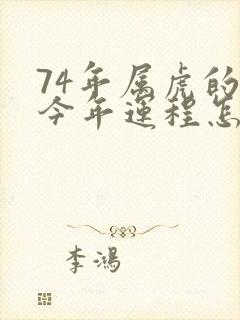 74年属虎的
今年运程怎
李鸿